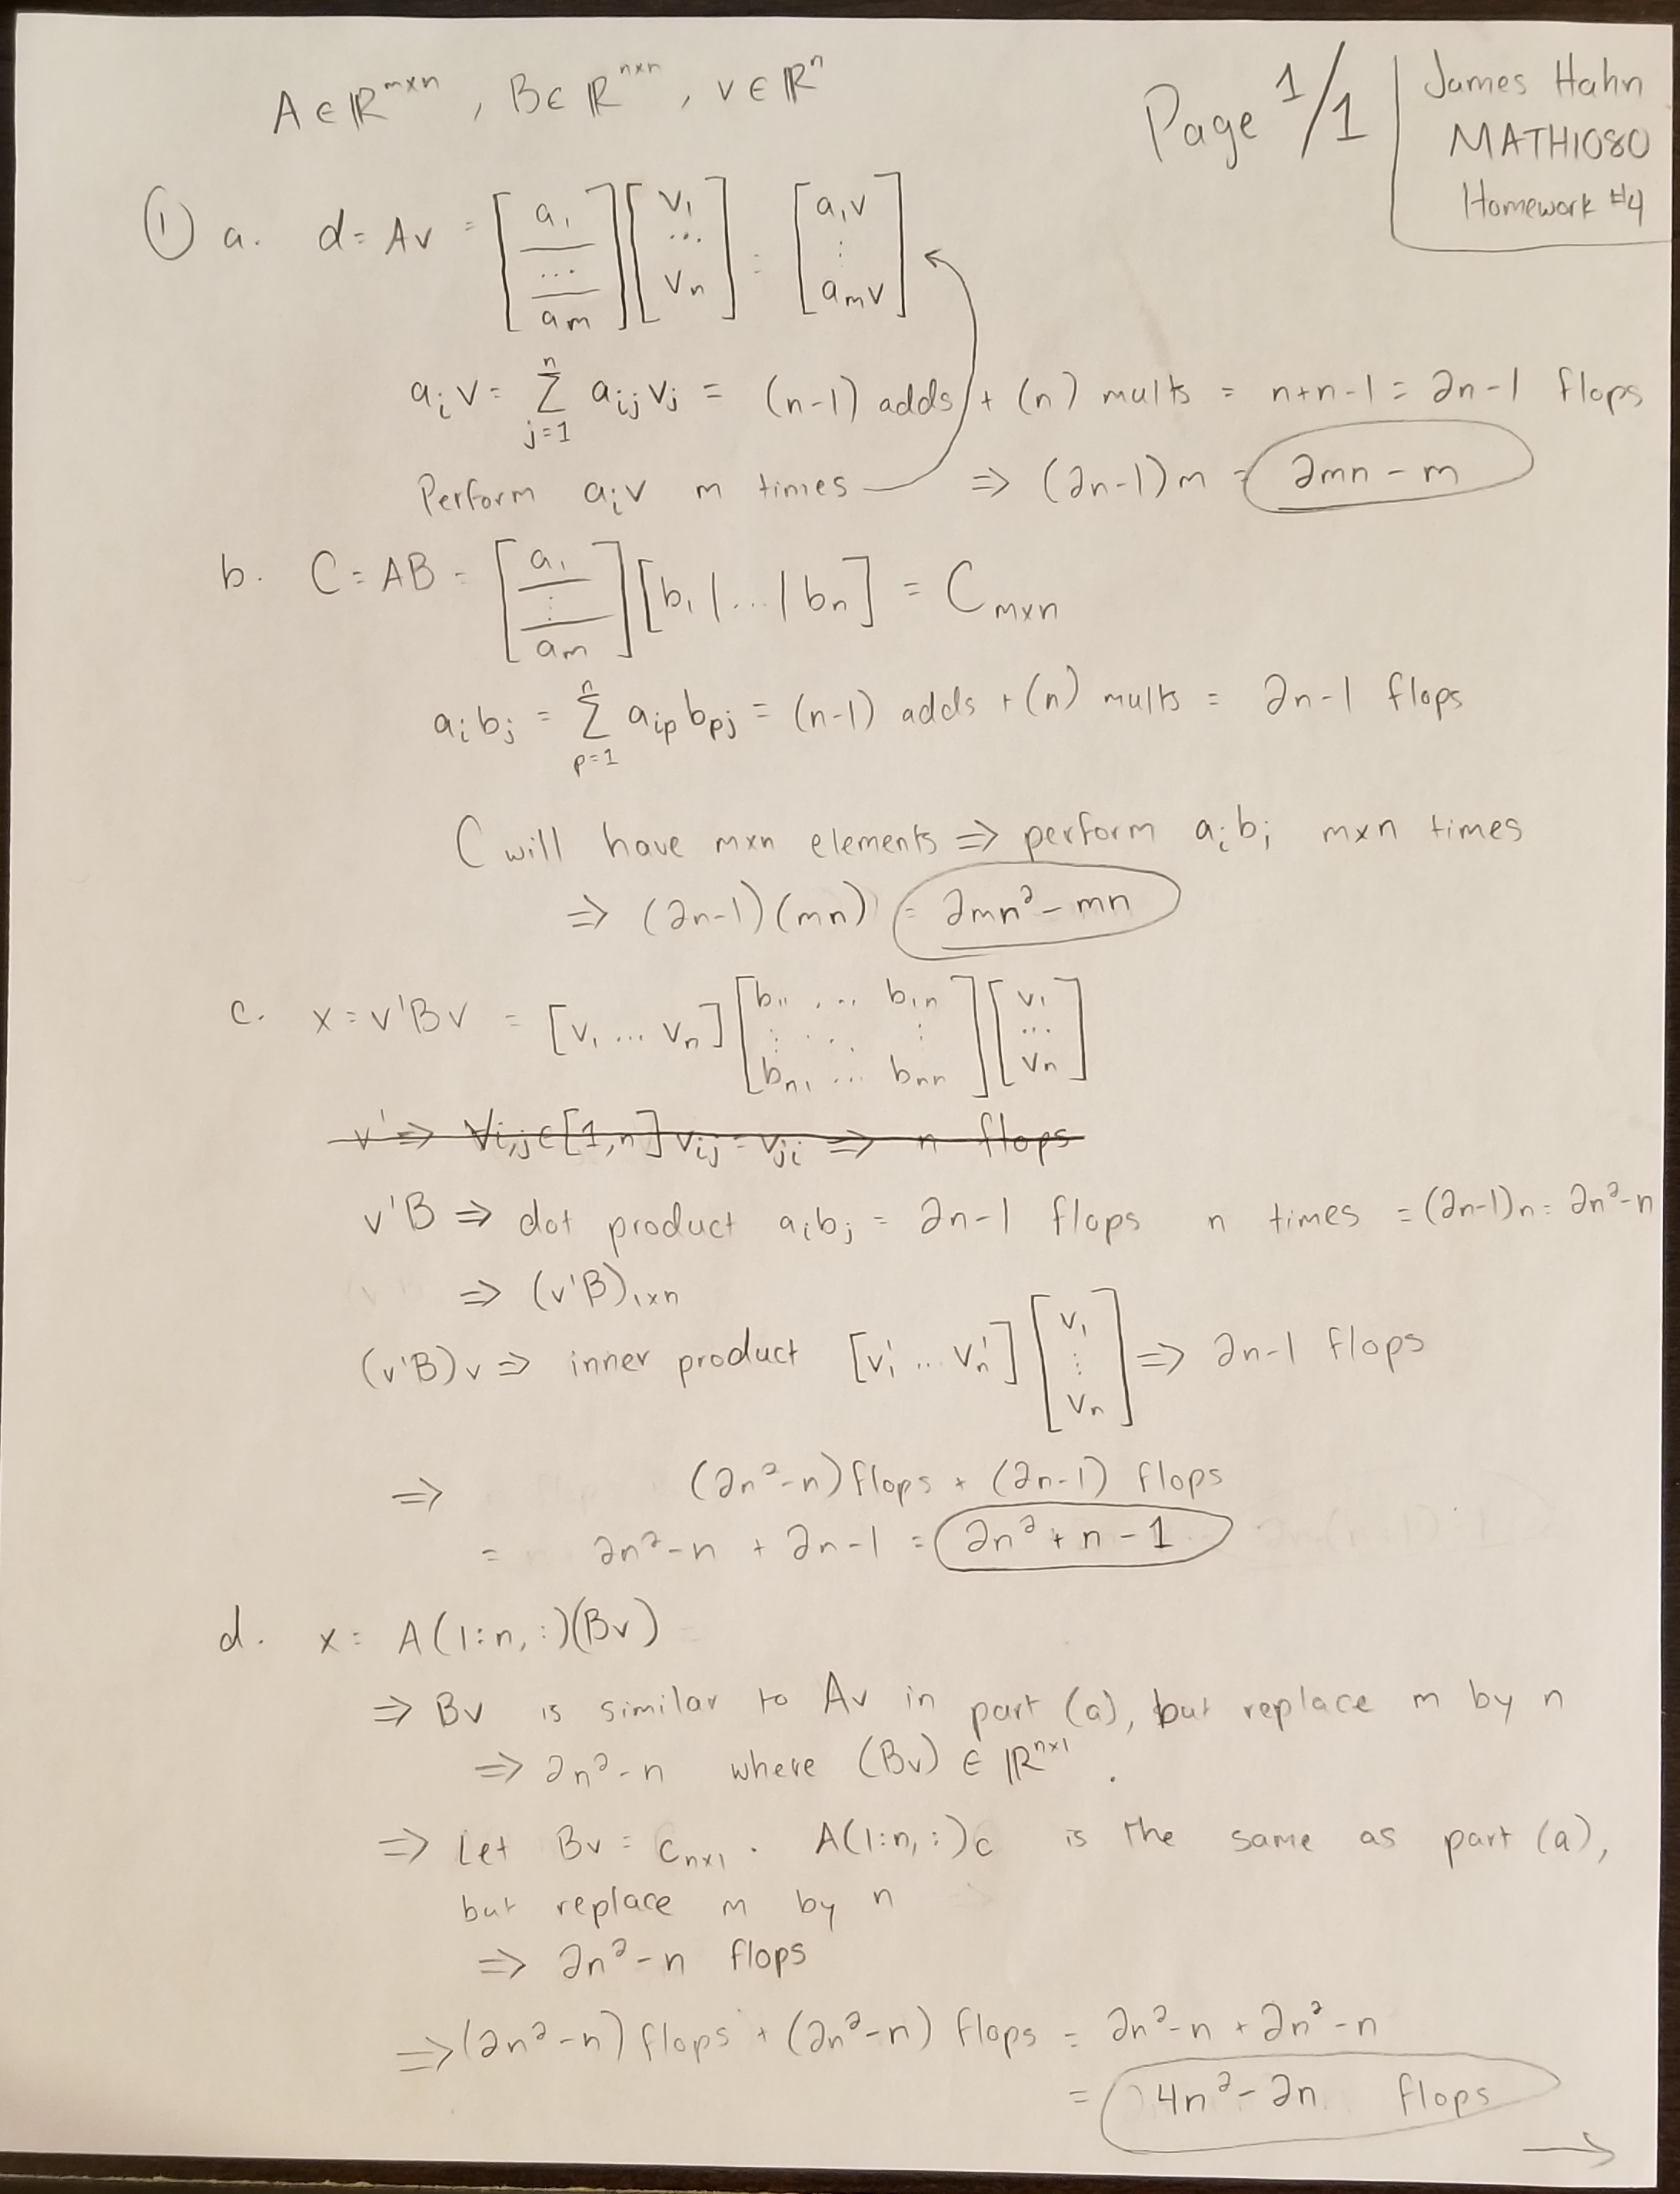 A ∈ ℝ^{m×n}, B ∈ ℝ^{n×n}, v ∈ ℝ^n
Page 1/1
James Hahn
MATH1080
Homework #4
① a. d = Av = [a₁ / ... / aₘ][v₁ ... vₙ] = [a₁v ⋮ aₘv]
aᵢv = Σ_{j=1}^{n} aᵢⱼvⱼ = (n-1) adds + (n) mults = n+n-1 = 2n-1 flops
Perform aᵢv m times ⇒ (2n-1)m = 2mn - m
b. C = AB = [a₁ / ⋮ / aₘ][b₁ | ... | bₙ] = C_{m×n}
aᵢbⱼ = Σ_{p=1}^{n} a_{ip} b_{pj} = (n-1) adds + (n) mults = 2n-1 flops
C will have m×n elements ⇒ perform aᵢbⱼ m×n times
⇒ (2n-1)(mn) = 2mn² - mn
c. x = v'Bv = [v₁ ... vₙ][b₁₁ ... b₁ₙ ⋮ ⋱ ⋮ bₙ₁ ... bₙₙ][v₁ ... vₙ]
v' ⇒ ∀i,j∈[1,n] vᵢⱼ = vⱼᵢ ⇒ n flops
v'B ⇒ dot product aᵢbⱼ = 2n-1 flops n times = (2n-1)n = 2n²-n
⇒ (v'B)_{1×n}
(v'B)v ⇒ inner product [v₁' ... vₙ'][v₁ ⋮ vₙ] ⇒ 2n-1 flops
⇒ (2n²-n) flops + (2n-1) flops
= 2n²-n + 2n-1 = 2n² + n - 1
d. x = A(1:n,:)(Bv)
⇒ Bv is similar to Av in part (a), but replace m by n
⇒ 2n²-n where (Bv) ∈ ℝ^{n×1}.
⇒ Let Bv = c_{n×1}. A(1:n,:)c is the same as part (a),
but replace m by n
⇒ 2n²-n flops
⇒ (2n²-n) flops + (2n²-n) flops = 2n²-n + 2n²-n
= 4n² - 2n flops
→